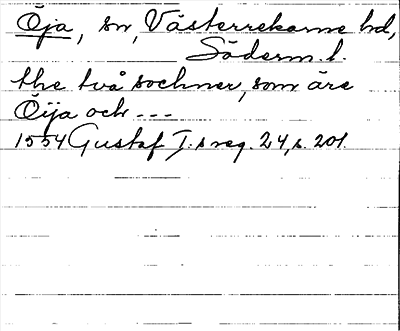 Öja, sn, Västerrekarne hd,
Söderm. l.
the två sochner, som äre
Öija och ---
1554 Gustaf I:s reg. 24, s. 201.